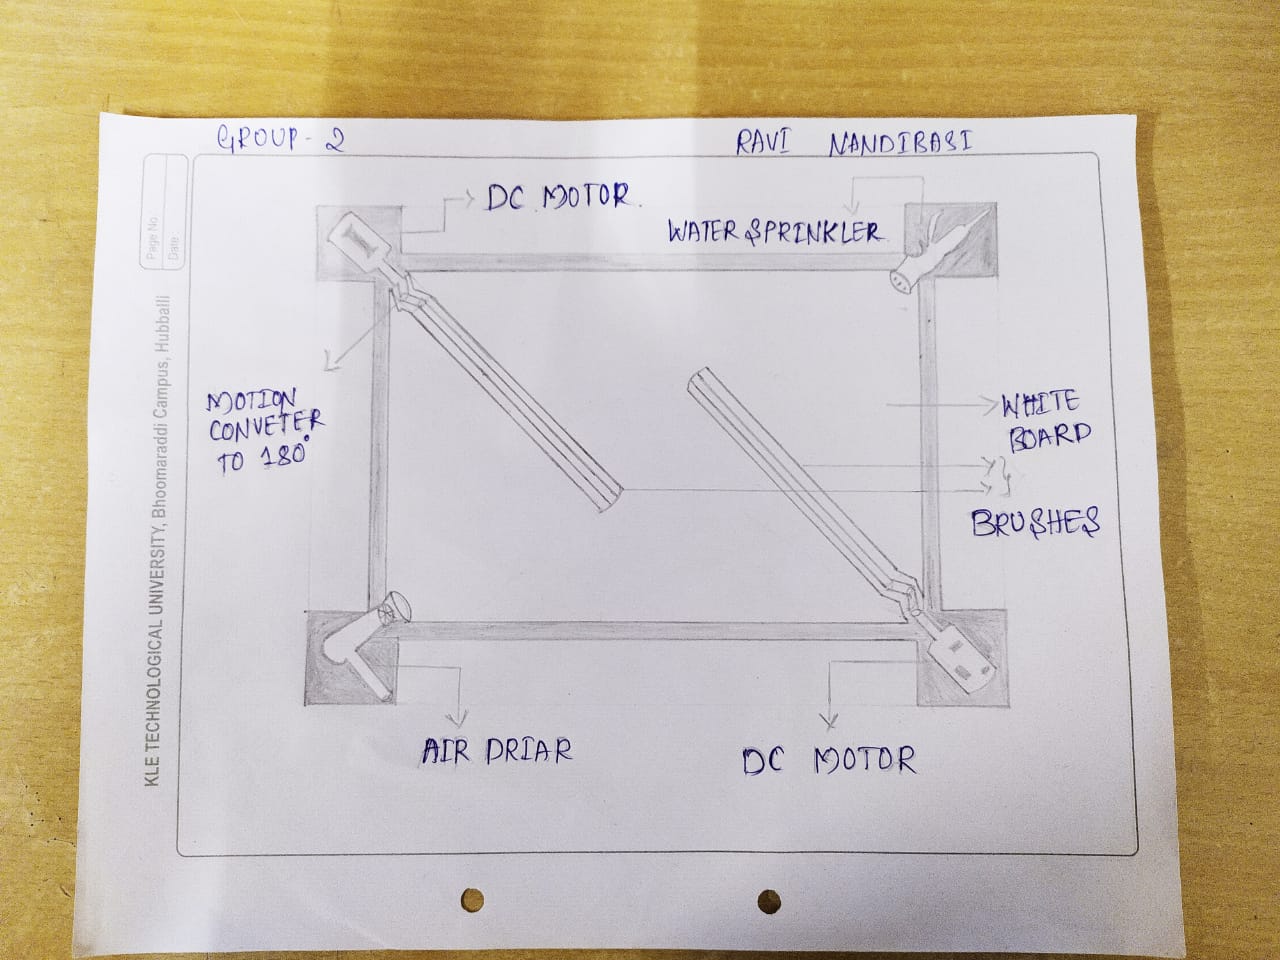 GROUP - 2
RAVI NANDIBASI
Page No
Date
KLE TECHNOLOGICAL UNIVERSITY, Bhoomaraddi Campus, Hubballi
DC MOTOR.
WATER SPRINKLER
MOTION
CONVETER
TO 180°
WHITE
BOARD
BRUSHES
AIR DRIAR
DC MOTOR